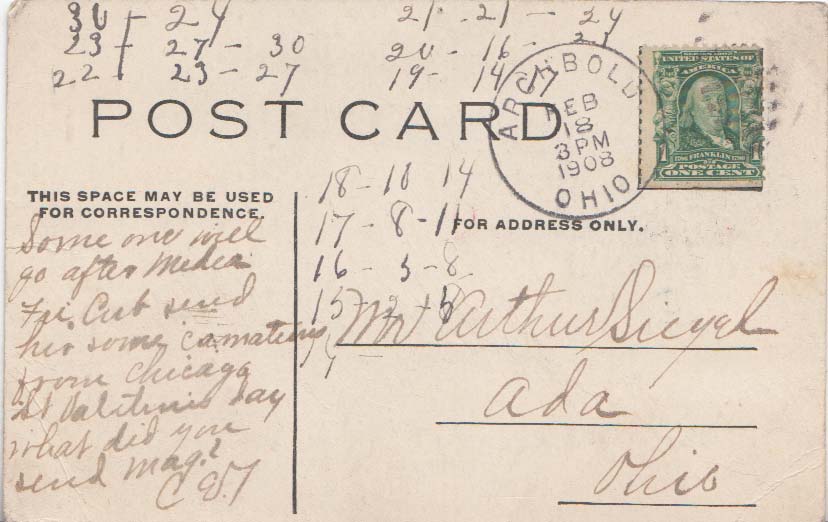 30 + 24
23 + 27 - 30
22 + 23 - 27
21 - 21 - 24
20 - 16 - 21
19 - 14 - 17
POST CARD
ARCHBOLD
FEB
18
3 PM
1908
OHIO
UNITED STATES OF
AMERICA
1 FRANKLIN 1
POSTAGE
ONE CENT
THIS SPACE MAY BE USED
FOR CORRESPONDENCE.
18 - 10 14
17 - 8 - 11
16 - 5 - 8
15 - 2 - 5
FOR ADDRESS ONLY.
Some one will
go after
Fri. Cub send
her some
from Chicago
St day
what did you
send Mag.?
Mr Arthur Siegel
Ada
Ohio